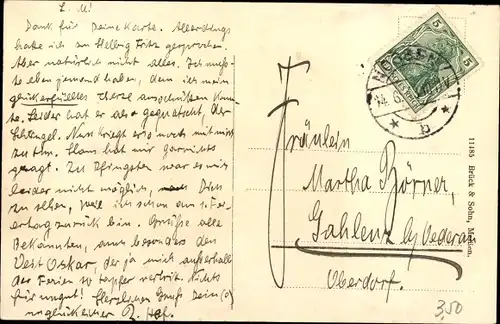 L. M!
Dank für Deine Karte. Allerdings
habe ich zu Hellbig Fritz gesprochen.
Aber natürlich nicht alles. Ich muß-
te eben jemand haben, dem ich mein
Herz ausschütten konn-
te. Leider hat er als gequatscht, der
Nun kriegt er's noch mit mir
zu tun. Hans hat mir garnichts
gesagt. Zu Pfingsten war es mir
leider nicht möglich, Dich
zu sehen, weil ich schon am 1. Fei-
ertag zurück bin. Grüße alle
Bekannten, besonders den
Veit Oskar, der ja mich außerhalb
der Ferien so tapfer vertritt. Nichts
für ungut! Herzlichen Gruß Dein (o)
unglücklicher R. Hof.
5 5
NOSSEN
14.6.
* b *
Fräulein
Martha Börner,
Gahlenz b/ Oederan
Oberdorf.
11485 Brück & Sohn, Meißen.
3,50